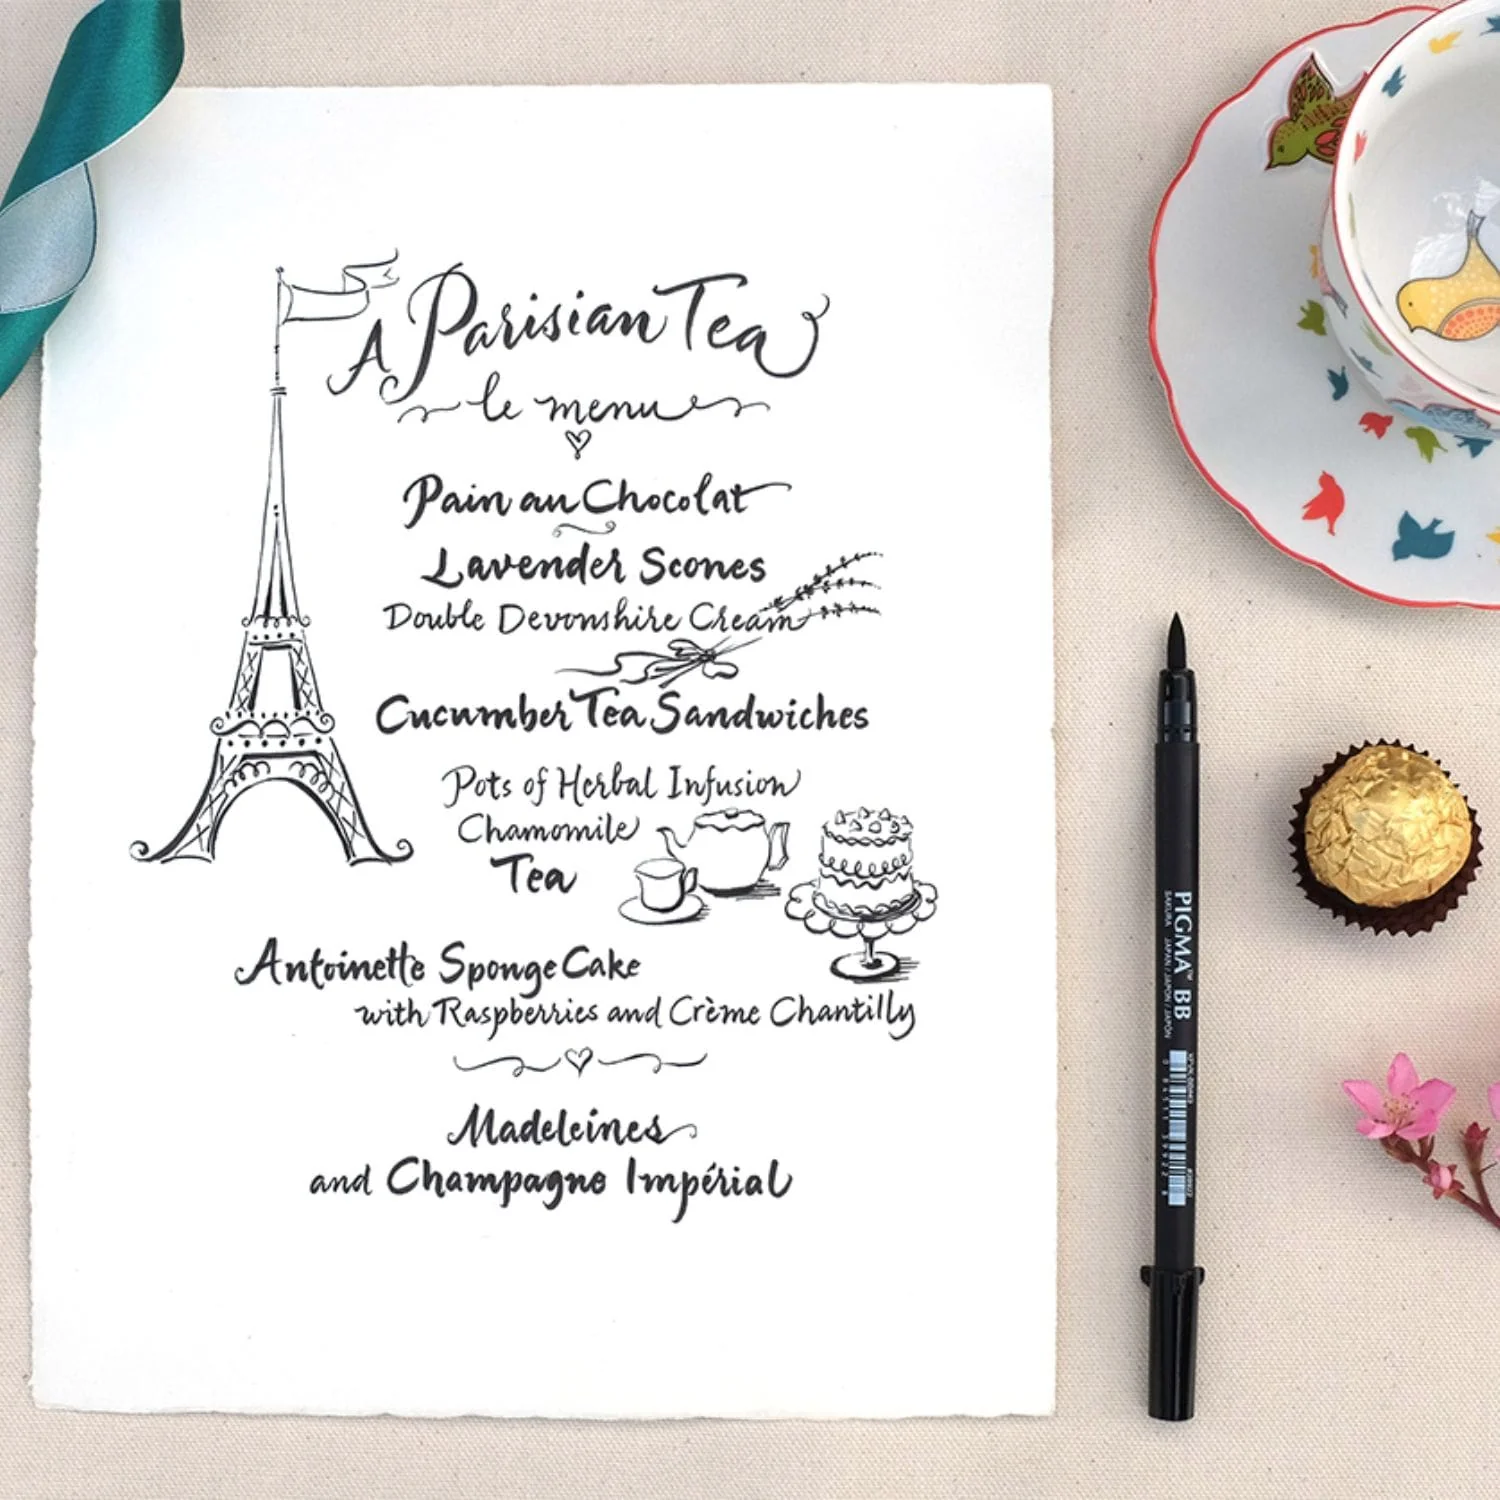 A Parisian Tea
le menu
Pain au Chocolat
Lavender Scones
Double Devonshire Cream
Cucumber Tea Sandwiches
Pots of Herbal Infusion
Chamomile
Tea
Antoinette Sponge Cake
with Raspberries and Crème Chantilly
Madeleines
and Champagne Impérial
PIGMA™ BB
SAKURA JAPAN / JAPON / JAPÓN